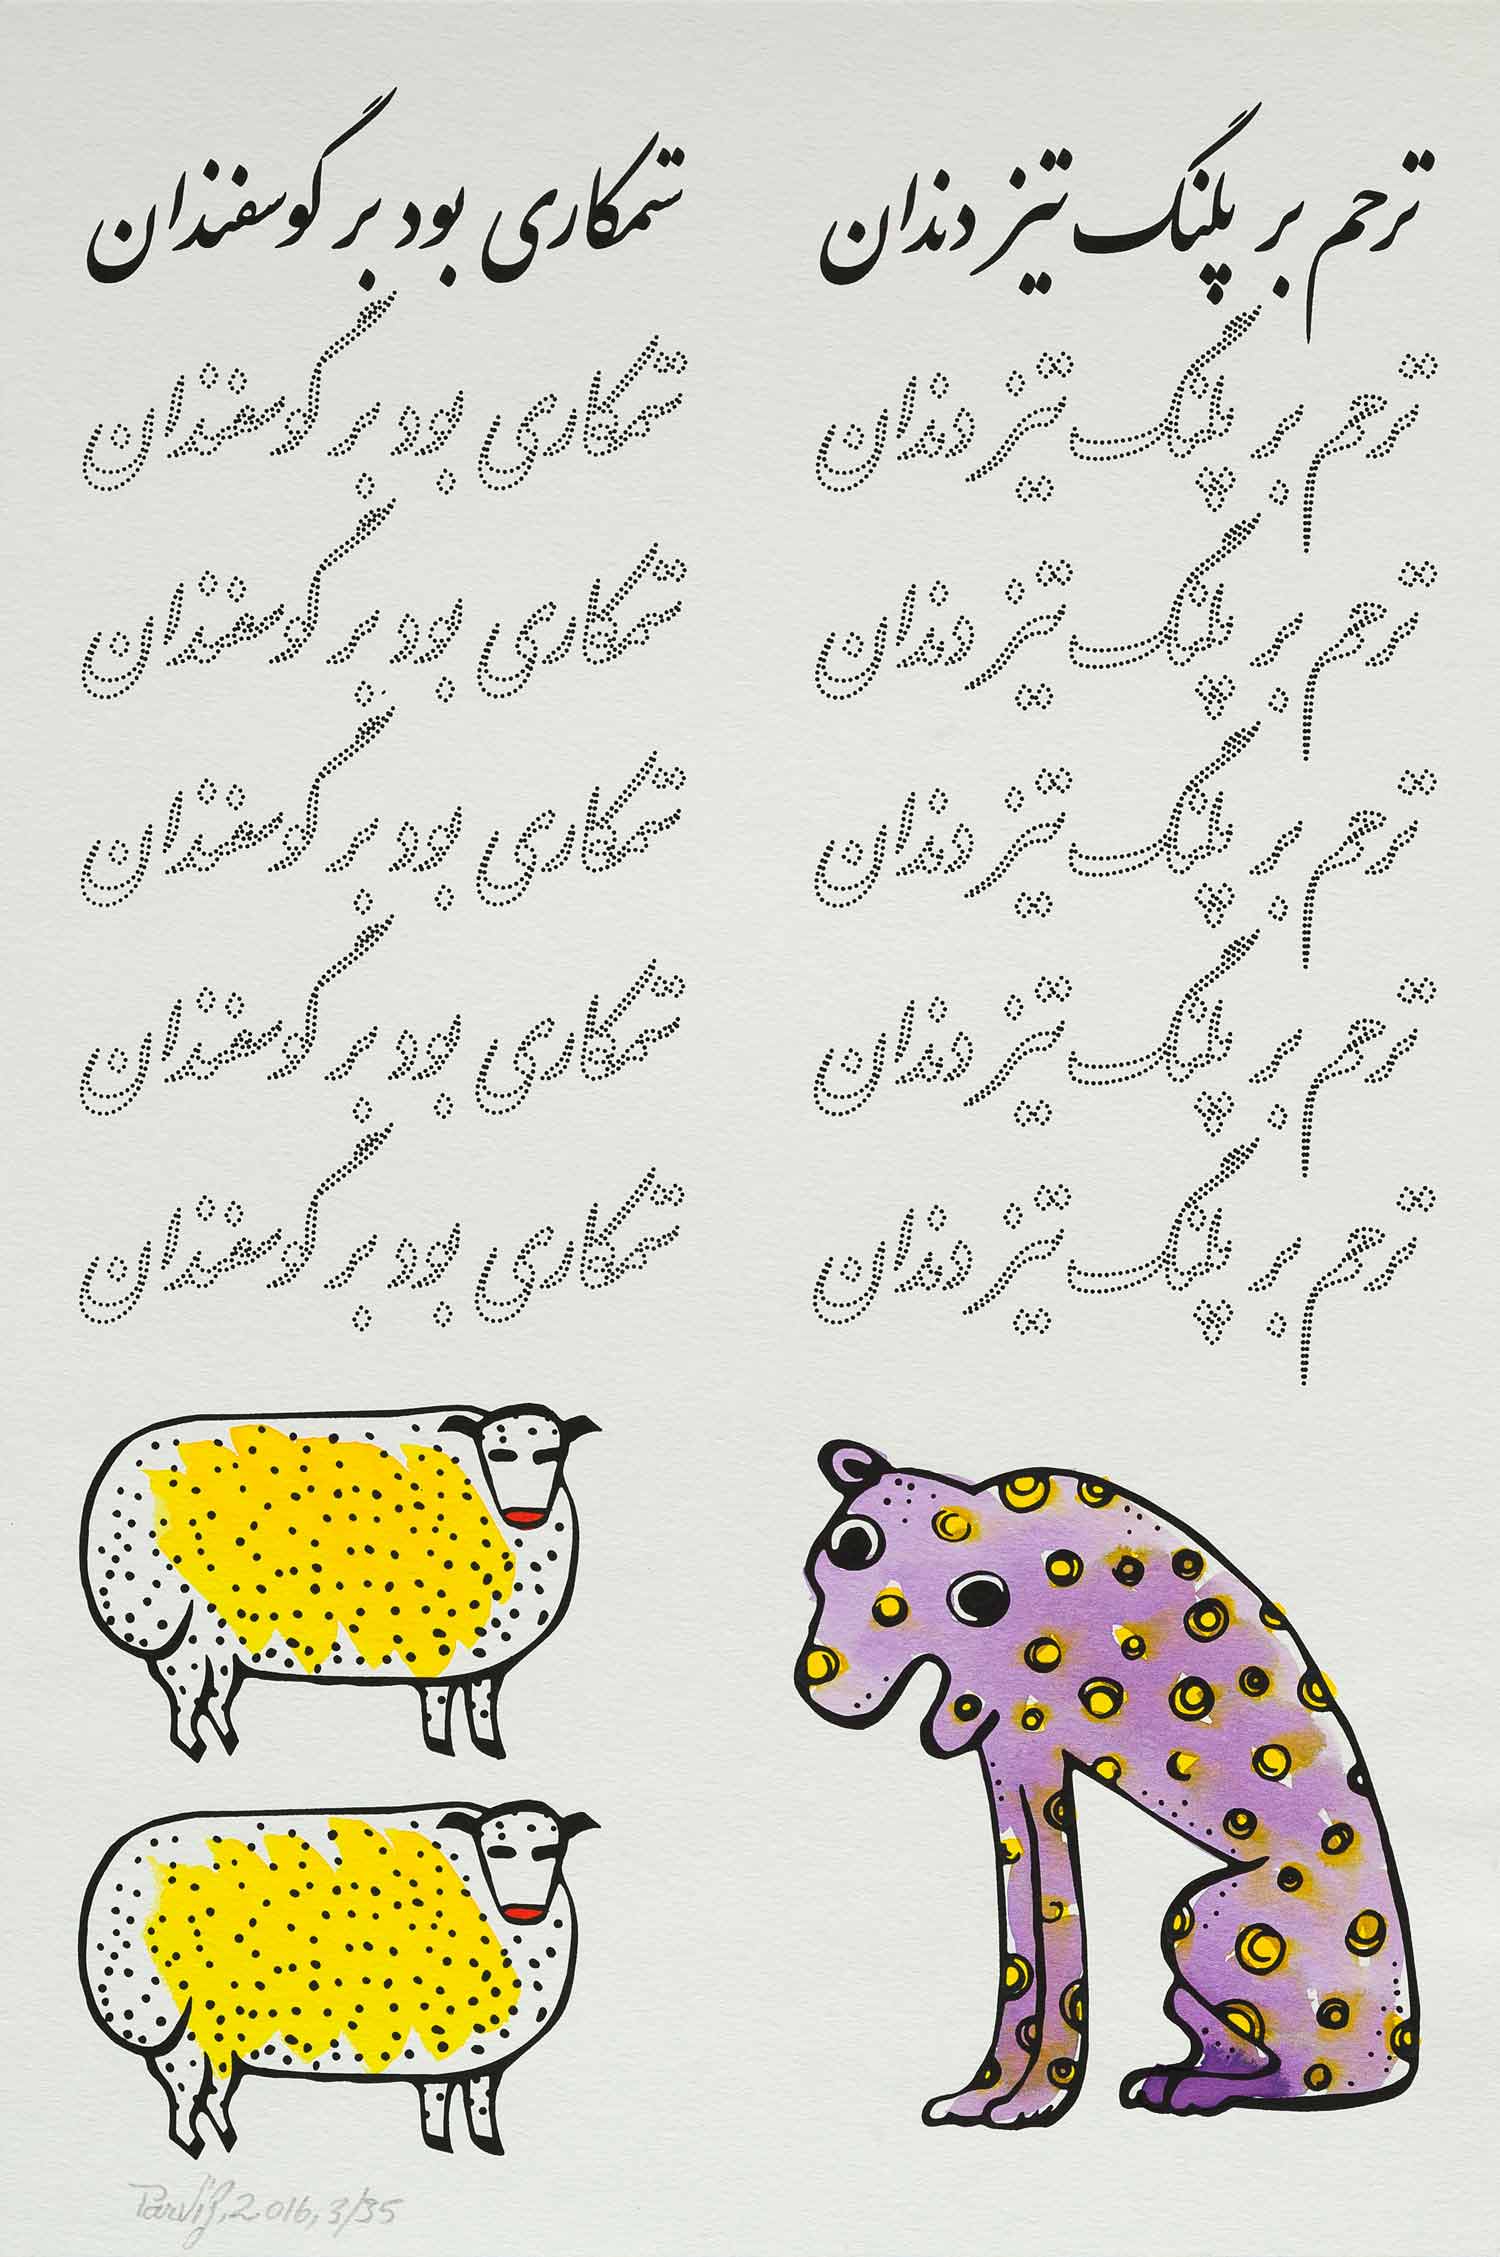 ترحم بر پلنگ تیز دندان ستمکاری بود بر گوسفندان
ترحم بر پلنگ تیز دندان ستمکاری بود بر گوسفندان
ترحم بر پلنگ تیز دندان ستمکاری بود بر گوسفندان
ترحم بر پلنگ تیز دندان ستمکاری بود بر گوسفندان
ترحم بر پلنگ تیز دندان ستمکاری بود بر گوسفندان
ترحم بر پلنگ تیز دندان ستمکاری بود بر گوسفندان
Parviz, 2016, 3/35